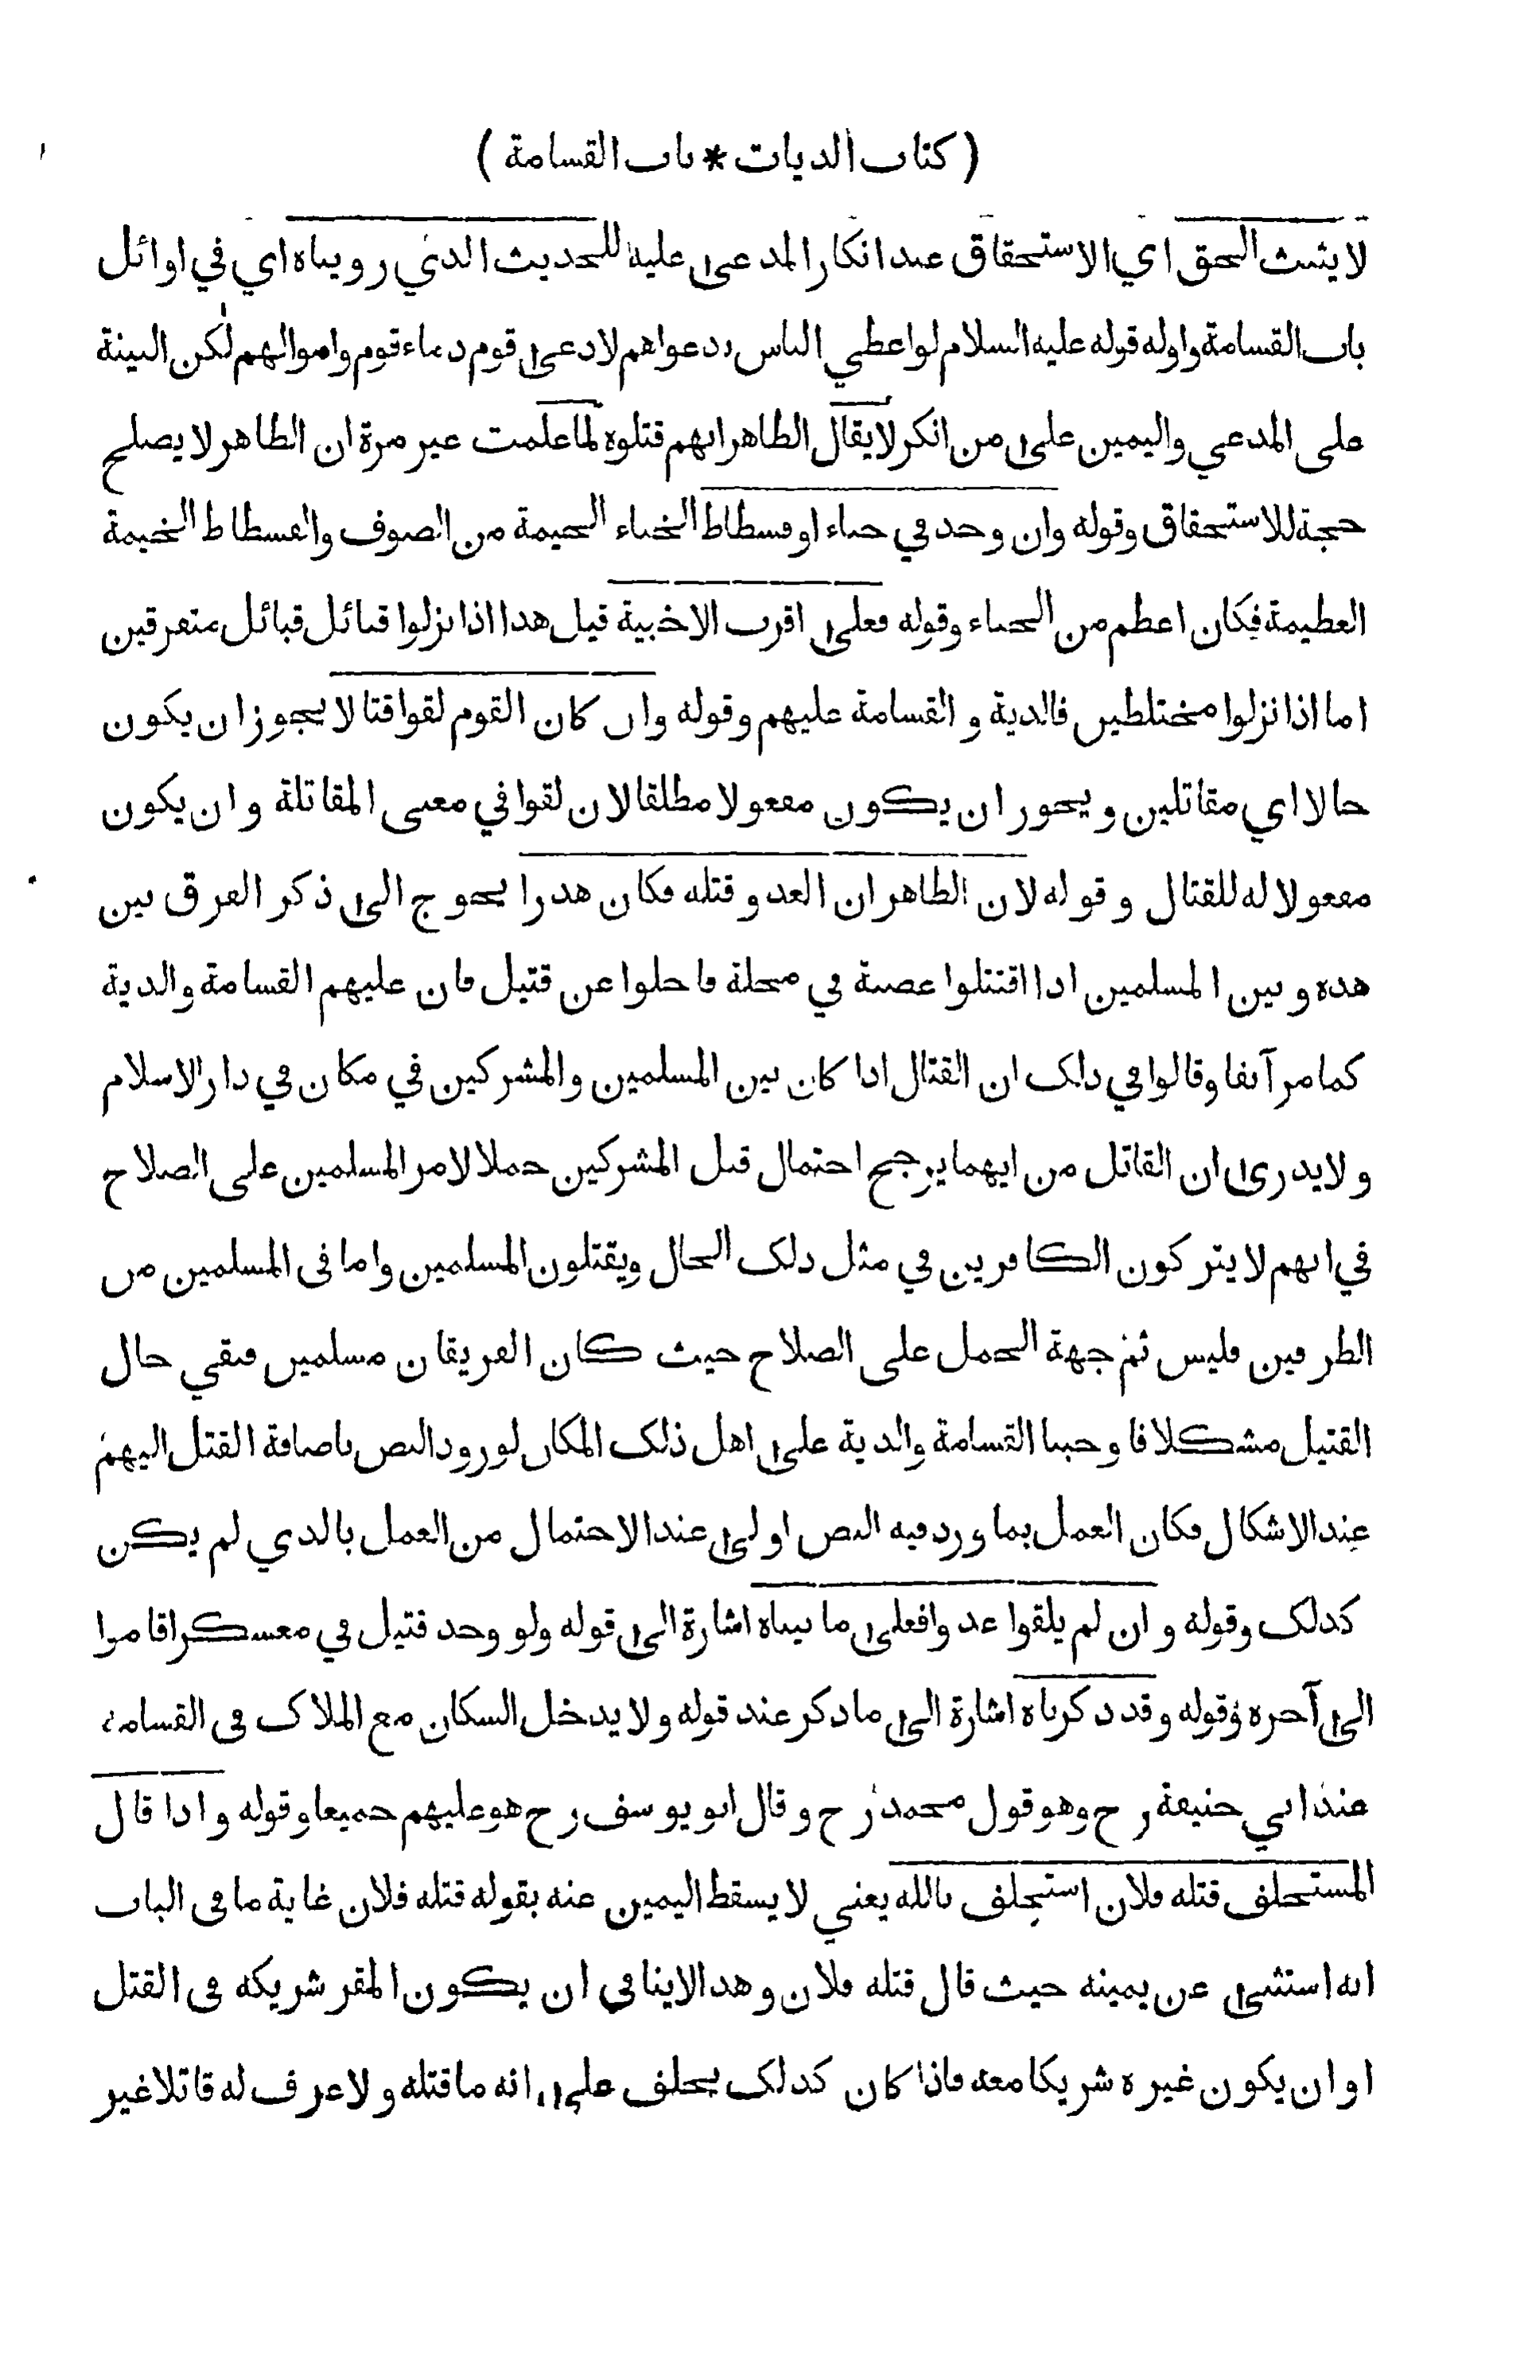 ( كتاب الديات * باب القسامة )
لا يثبت الحق اي الاستحقاق عند انكار المدعى عليه للحديث الذي رويناه اي في اوائل
باب القسامة واوله قوله عليه السلام لو اعطي الناس بدعواهم لادعى قوم دماء قوم واموالهم لكن البينة
على المدعي واليمين على من انكر لا يقال الظاهر انهم قتلوه لما علمت غير مرة ان الظاهر لا يصلح
حجة للاستحقاق وقوله وان وجد في خباء او فسطاط الخباء الخيمة من الصوف والفسطاط الخيمة
العظيمة فكان اعظم من الخباء وقوله فعلى اقرب الاخبية قيل هذا اذا نزلوا قبائل قبائل متفرقين
اما اذا نزلوا مختلطين فالدية و القسامة عليهم وقوله وان كان القوم لقوا قتالا يجوز ان يكون
حالا اي مقاتلين ويجوز ان يكون مفعولا مطلقا لان لقوا في معنى المقاتلة وان يكون
مفعولا له للقتال وقوله لان الظاهر ان العدو قتله فكان هدرا يحوج الى ذكر الفرق بين
هذه وبين المسلمين اذا اقتتلوا عصبة في محلة فاجلوا عن قتيل فان عليهم القسامة والدية
كما مر آنفا وقالوا في ذلك ان القتال اذا كان بين المسلمين والمشركين في مكان في دار الاسلام
ولا يدرى ان القاتل من ايهما يرجح احتمال قبل المشركين حملا لامر المسلمين على الصلاح
في انهم لا يتركون الكافرين في مثل ذلك الحال ويقتلون المسلمين واما فى المسلمين من
الطرفين فليس ثم جهة الحمل على الصلاح حيث كان الفريقان مسلمين فبقي حال
القتيل مشكلا فاوجبنا القسامة والدية على اهل ذلك المكان لورود النص باضافة القتل اليهم
عند الاشكال فكان العمل بما ورد فيه النص اولى عند الاحتمال من العمل بالذي لم يكن
كذلك وقوله وان لم يلقوا عدوا فعلى ما بيناه اشارة الى قوله ولو وجد قتيل في معسكر اقاموا
الى آخره وقوله وقد ذكرناه اشارة الى ما ذكر عند قوله ولا يدخل السكان مع الملاك فى القسامة
عند ابي حنيفة رح وهو قول محمد رح وقال ابو يوسف رح هو عليهم جميعا وقوله واذا قال
المستحلف قتله فلان استحلف بالله يعني لا يسقط اليمين عنه بقوله قتله فلان غاية ما فى الباب
انه استثنى عن يمينه حيث قال قتله فلان وهذا لا ينافي ان يكون المقر شريكه فى القتل
او ان يكون غيره شريكا معه فاذا كان كذلك يحلف على انه ما قتله ولا عرف له قاتلا غير